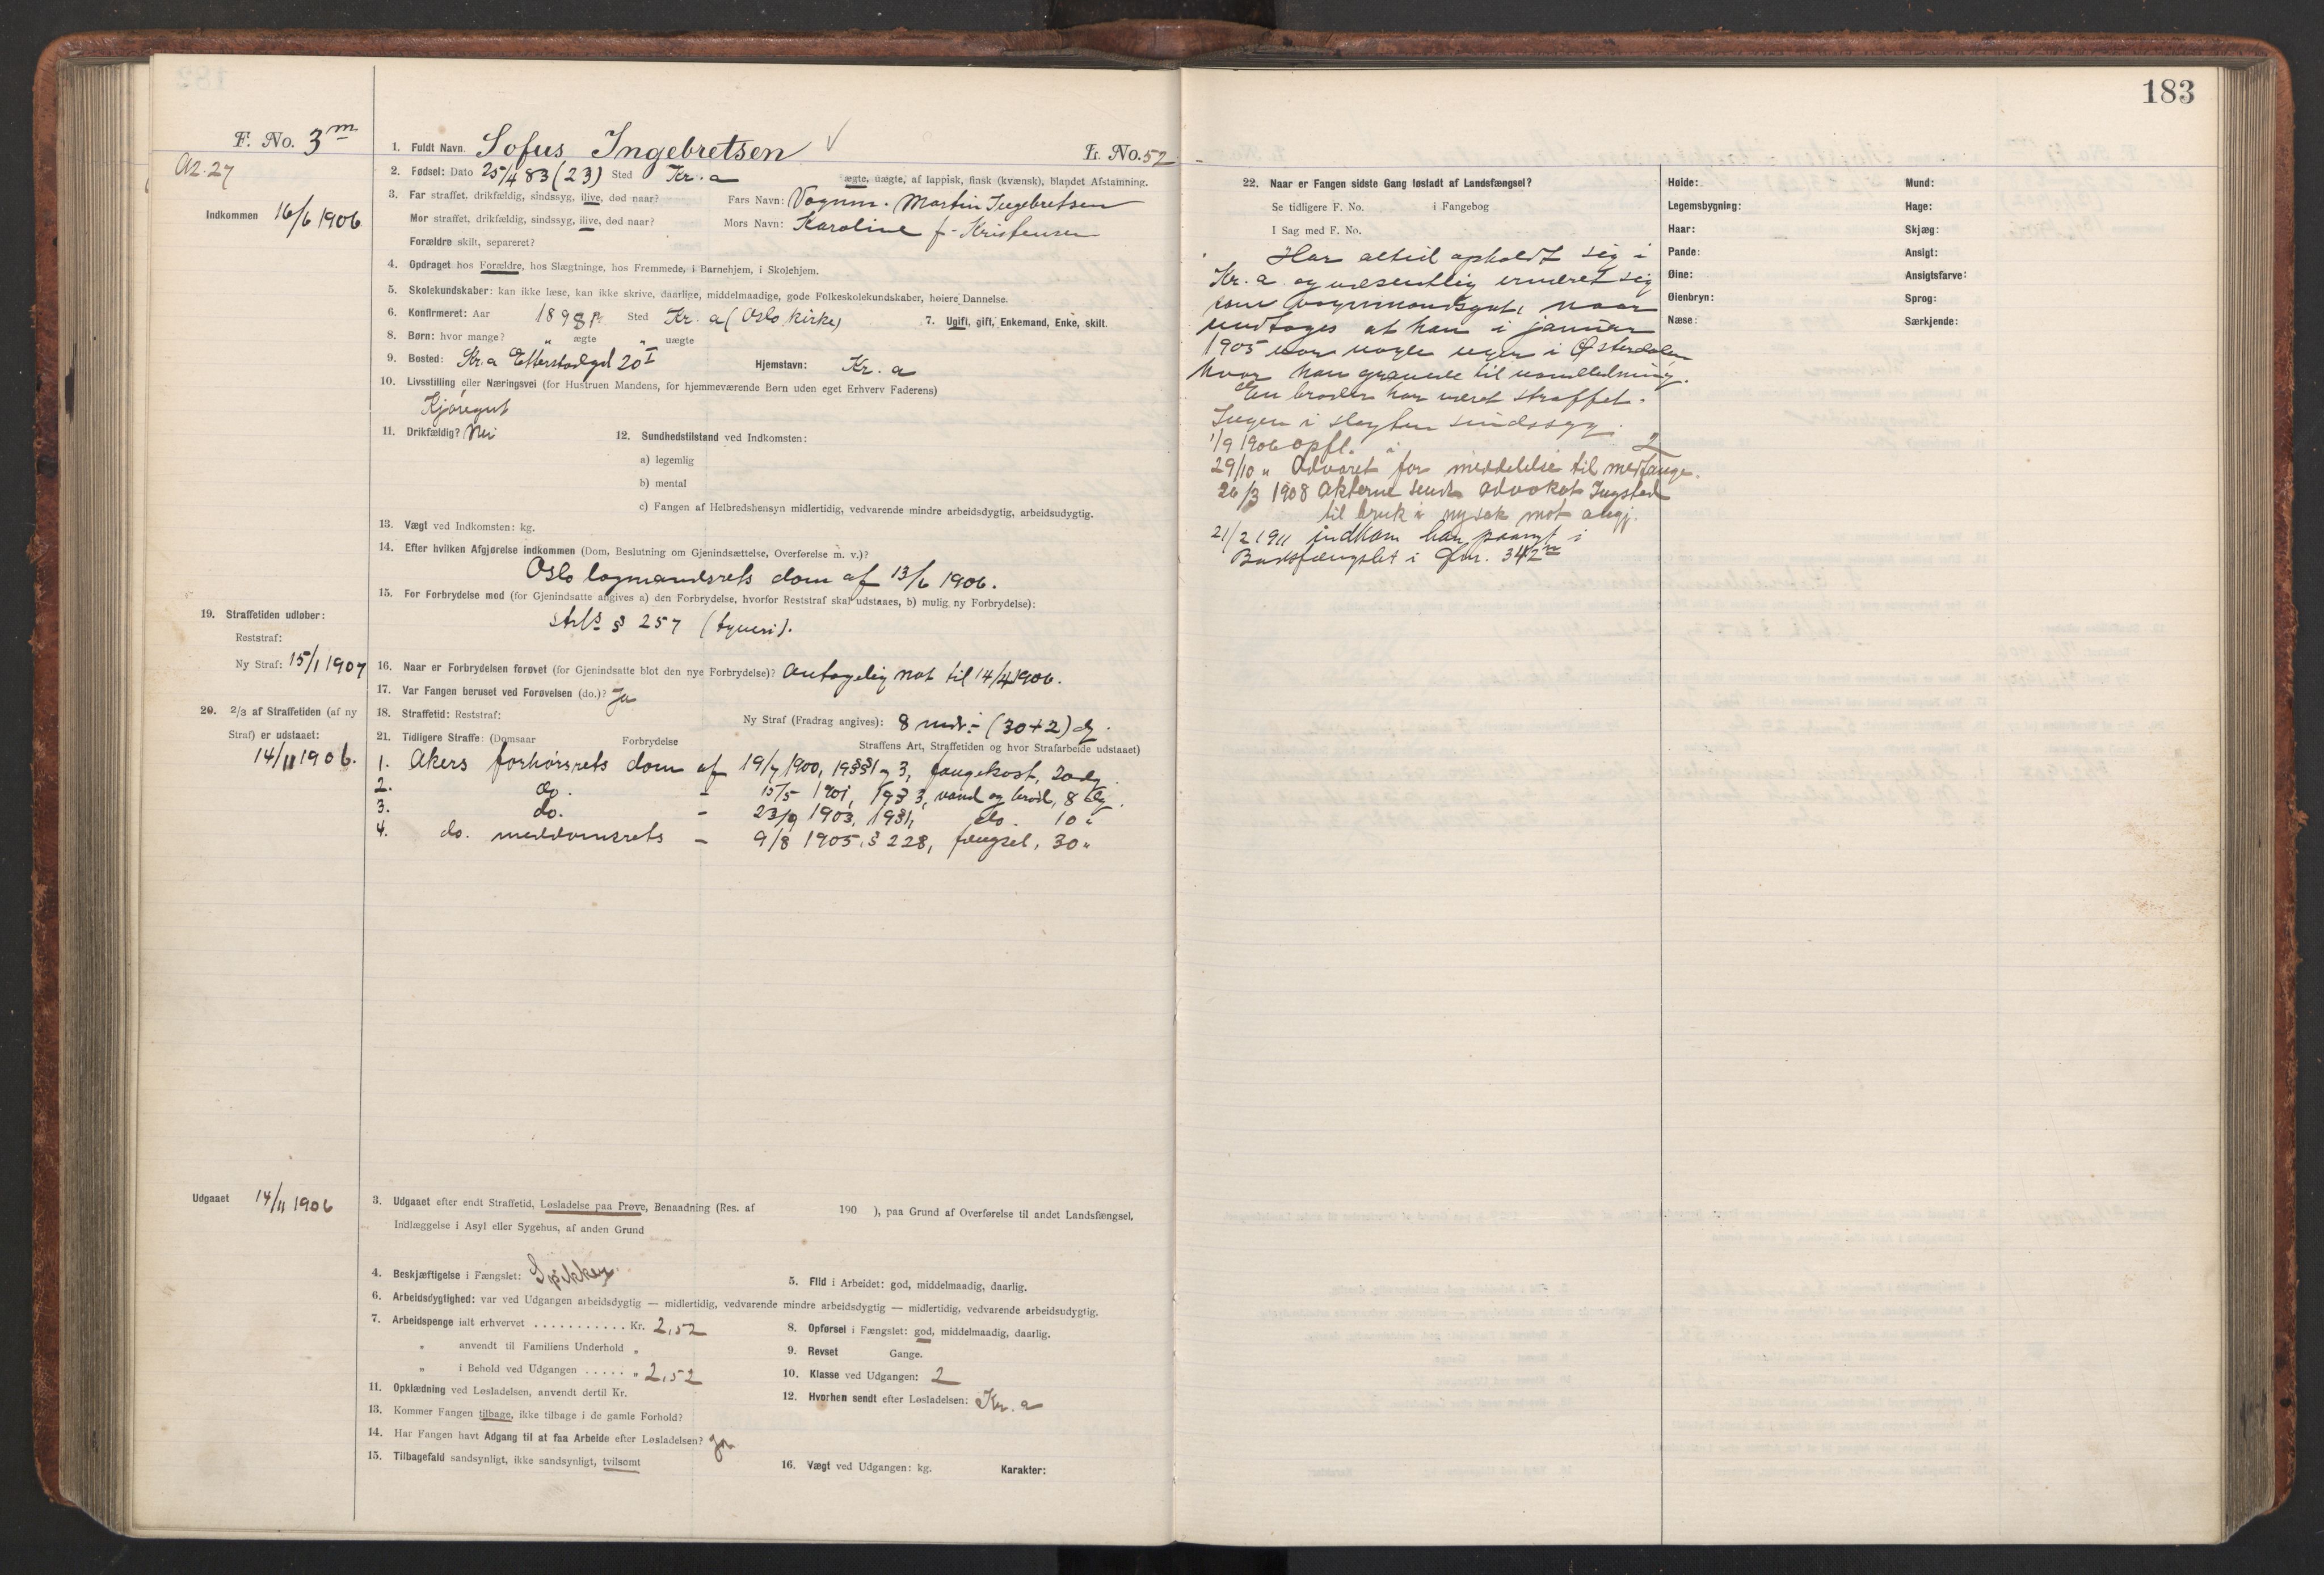 183
F. No. 3m
A2.27
Indkommen 16/6 1906
1. Fuldt Navn. Sofus Ingebretsen L. No. 52
2. Fødsel: Dato 25/4 83 (23) Sted Kr.a ægte, uægte, af lappisk, finsk (kvænsk), blandet Afstamning.
3. Far straffet, drikfældig, sindssyg, ilive, død naar? Fars Navn: Vognm. Martin Ingebretsen
Mor straffet, drikfældig, sindssyg, ilive, død naar? Mors Navn: Karoline f. Kristensen
Forældre skilt, separeret?
4. Opdraget hos Forældre, hos Slægtninge, hos Fremmede, i Barnehjem, i Skolehjem.
5. Skolekundskaber: kan ikke læse, kan ikke skrive, daarlige, middelmaadige, gode Folkeskolekundskaber, høiere Dannelse.
6. Konfirmeret: Aar 1898 Sted Kr.a (Oslo kirke) 7. Ugift, gift, Enkemand, Enke, skilt.
8. Børn: hvor mange? " ægte " uægte
9. Bosted: Kr.a Etterstadgd 20 I Hjemstavn: Kr.a
10. Livsstilling eller Næringsvei (for Hustruen Mandens, for hjemmeværende Børn uden eget Erhverv Faderens)
Kjøregut
11. Drikfældig? Nei 12. Sundhedstilstand ved Indkomsten:
a) legemlig
b) mental
c) Fangen af Helbredshensyn midlertidig, vedvarende mindre arbeidsdygtig, arbeidsudygtig.
13. Vægt ved Indkomsten: kg.
14. Efter hvilken Afgjørelse indkommen (Dom, Beslutning om Gjenindsættelse, Overførelse m. v.)?
Oslo lagmandsrets dom af 13/6 1906.
15. For Forbrydelse mod (for Gjenindsatte angives a) den Forbrydelse, hvorfor Reststraf skal udstaaes, b) mulig ny Forbrydelse):
Strls § 257 (tyveri).
19. Straffetiden udløber:
Reststraf:
Ny Straf: 15/1 1907
16. Naar er Forbrydelsen forøvet (for Gjenindsatte blot den nye Forbrydelse)? Antagelig nat til 14/4 1906.
17. Var Fangen beruset ved Forøvelsen (do.)? Ja
18. Straffetid: Reststraf: Ny Straf (Fradrag angives): 8 mdr. ÷ (30+2) dg.
20. 2/3 af Straffetiden (af ny
Straf) er udstaaet:
14/11 1906.
21. Tidligere Straffe: (Domsaar Forbrydelse Straffens Art, Straffetiden og hvor Strafarbeide udstaaet)
1. Akers forhørsrets dom af 19/7 1900, 19 §§ 1 og 3, fangekost, 20 dg.
2. do. - 15/5 1901, 19 § 3, vand og brød, 8 dg.
3. do. - 23/9 1903, 19 § 1, do. 10 "
4. do. meddomsrets - 9/8 1905, § 228, fængsel, 30 "
Udgaaet 14/11 1906
3. Udgaaet efter endt Straffetid, Løsladelse paa Prøve, Benaadning (Res. af 190 ), paa Grund af Overførelse til andet Landsfængsel,
Indlæggelse i Asyl eller Sygehus, af anden Grund
4. Beskjæftigelse i Fængslet: 5. Flid i Arbeidet: god, middelmaadig, daarlig.
6. Arbeidsdygtighed: var ved Udgangen arbeidsdygtig — midlertidig, vedvarende mindre arbeidsdygtig — midlertidig, vedvarende arbeidsudygtig.
7. Arbeidspenge ialt erhvervet ........... Kr. 2,52 8. Opførsel i Fængslet: god, middelmaadig, daarlig.
" anvendt til Familiens Underhold " 9. Revset Gange.
" i Behold ved Udgangen ...... " 2,52 10. Klasse ved Udgangen: 2
11. Opklædning ved Løsladelsen, anvendt dertil Kr. 12. Hvorhen sendt efter Løsladelsen: Kr.a
13. Kommer Fangen tilbage, ikke tilbage i de gamle Forhold?
14. Har Fangen havt Adgang til at faa Arbeide efter Løsladelsen? Ja
15. Tilbagefald sandsynligt, ikke sandsynligt, tvilsomt 16. Vægt ved Udgangen: kg. Karakter:
22. Naar er Fangen sidste Gang løsladt af Landsfængsel?
Se tidligere F. No. i Fangebog
I Sag med F. No.
Har altid opholdt sig i
Kr.a og væsentlig ernæret sig
som vognmandsgut, naar
undtages at han i januar
1905 var nogle uger i Østerdalen
hvor han gravede til vandledning.
En broder har været straffet.
Ingen i slegten sindssyg.
1/9 1906 opfl. i 2
29/10 " Advaret for meddelelse til medfange.
26/3 1908 Akterne sendt advokat Ingstad
til bruk i ny sak mot angj.
21/2 1911 indkom han paany i
Bodsfængslet i fnr. 342 n
Høide: Mund:
Legemsbygning: Hage:
Haar: Skjæg:
Pande: Ansigt:
Øine: Ansigtsfarve:
Øienbryn: Sprog:
Næse: Særkjende: